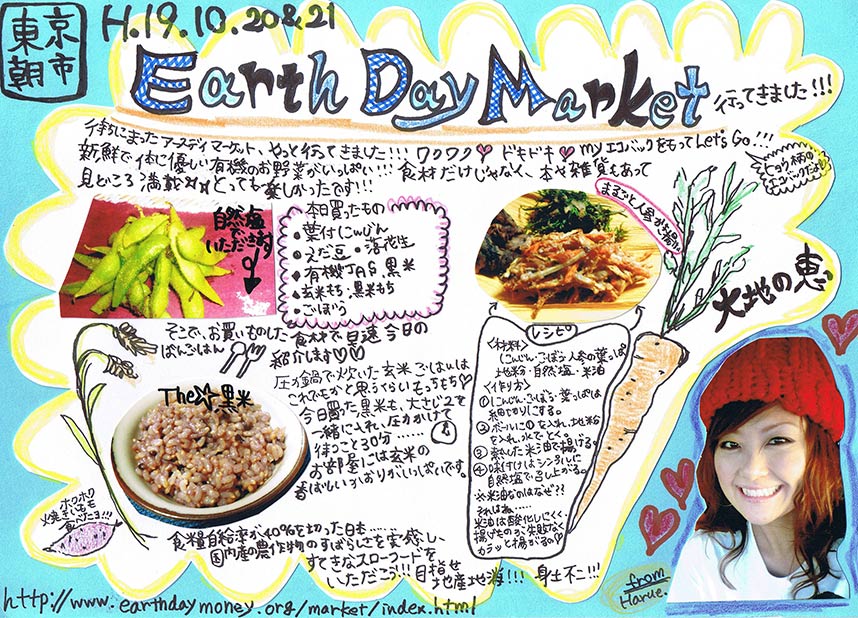 東京朝市
H.19.10.20&21
Earth Day Market 行ってきました!!!
待ちにまったアースデイマーケット、やっと行ってきました!!! ワクワク♡ ドキドキ♡ myエコバックをもってLet's Go!!!
新鮮で体に優しい有機のお野菜がいっぱい!!! 食材だけじゃなく、本や雑貨もあって
見どころ満載 とっても楽しかったです!!!
ヒョウ柄の
エコバックだよ
自然塩
で
いただきます
本日買ったもの
・葉付にんじん
・えだ豆・落花生
・有機JAS黒米
・玄米もち・黒米もち
・ごぼう
まるごと人参かき揚げ
大地の恵
そこで、お買いものした食材で早速今日の
ばんごはん
紹介します♡♡
The☆黒米
圧力鍋で炊いた玄米ごはんは
これでもかと思うくらいもっちもち♡
今日買った黒米も、大さじ2を
一緒に入れ、圧力かけて
待つこと30分……
お部屋には玄米の
香ばしいかおりがいっぱいです。
レシピ
<材料>
にんじん・ごぼう・人参の葉っぱ
地粉・自然塩・米油
<作り方>
①にんじん・ごぼう・葉っぱは
細切りにする。
②ボールに①を入れ、地粉
を入れ、水でとく。
③熱した米油で揚げる。
④味付けはシンプルに
自然塩で召し上がる。
※米油なのはなぜ??
それはね……
米油は酸化しにくく、
揚げものが失敗なく
カラッと揚がる♡
ホクホク
焼きいもも
食べたヨ!!!
食糧自給率が40%を切った日本……
国内産の農作物のすばらしさを実感し、
すてきなスローフードを
いただこう!!! 目指せ
地産地消!!! 身土不二!!!
from
Harue.
http://www.earthdaymoney.org/market/index.html